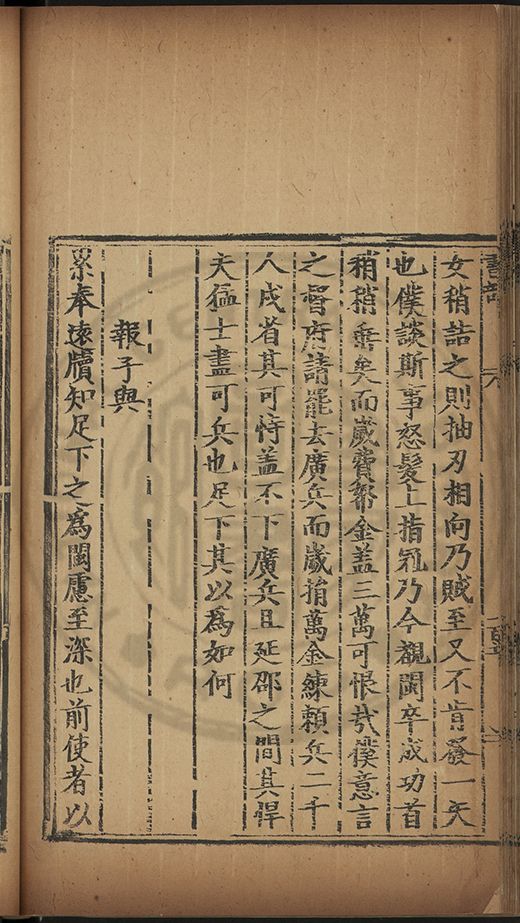 女稍詰之則抽刃相向乃賊至又不肯發一矢
也僕談斯事怒髮上指冠乃今觀閩卒成功首
稍稍矣而歲費帑金盖三萬可恨哉僕意言
之督府請罷去廣兵而歲捐萬金練賴兵二千
人戍省其可恃盖不下廣兵且延邵之間其悍
夫猛士盡可兵也足下其以為如何
報子與
累奉遠牘知足下之為閩慮至深也前使者以